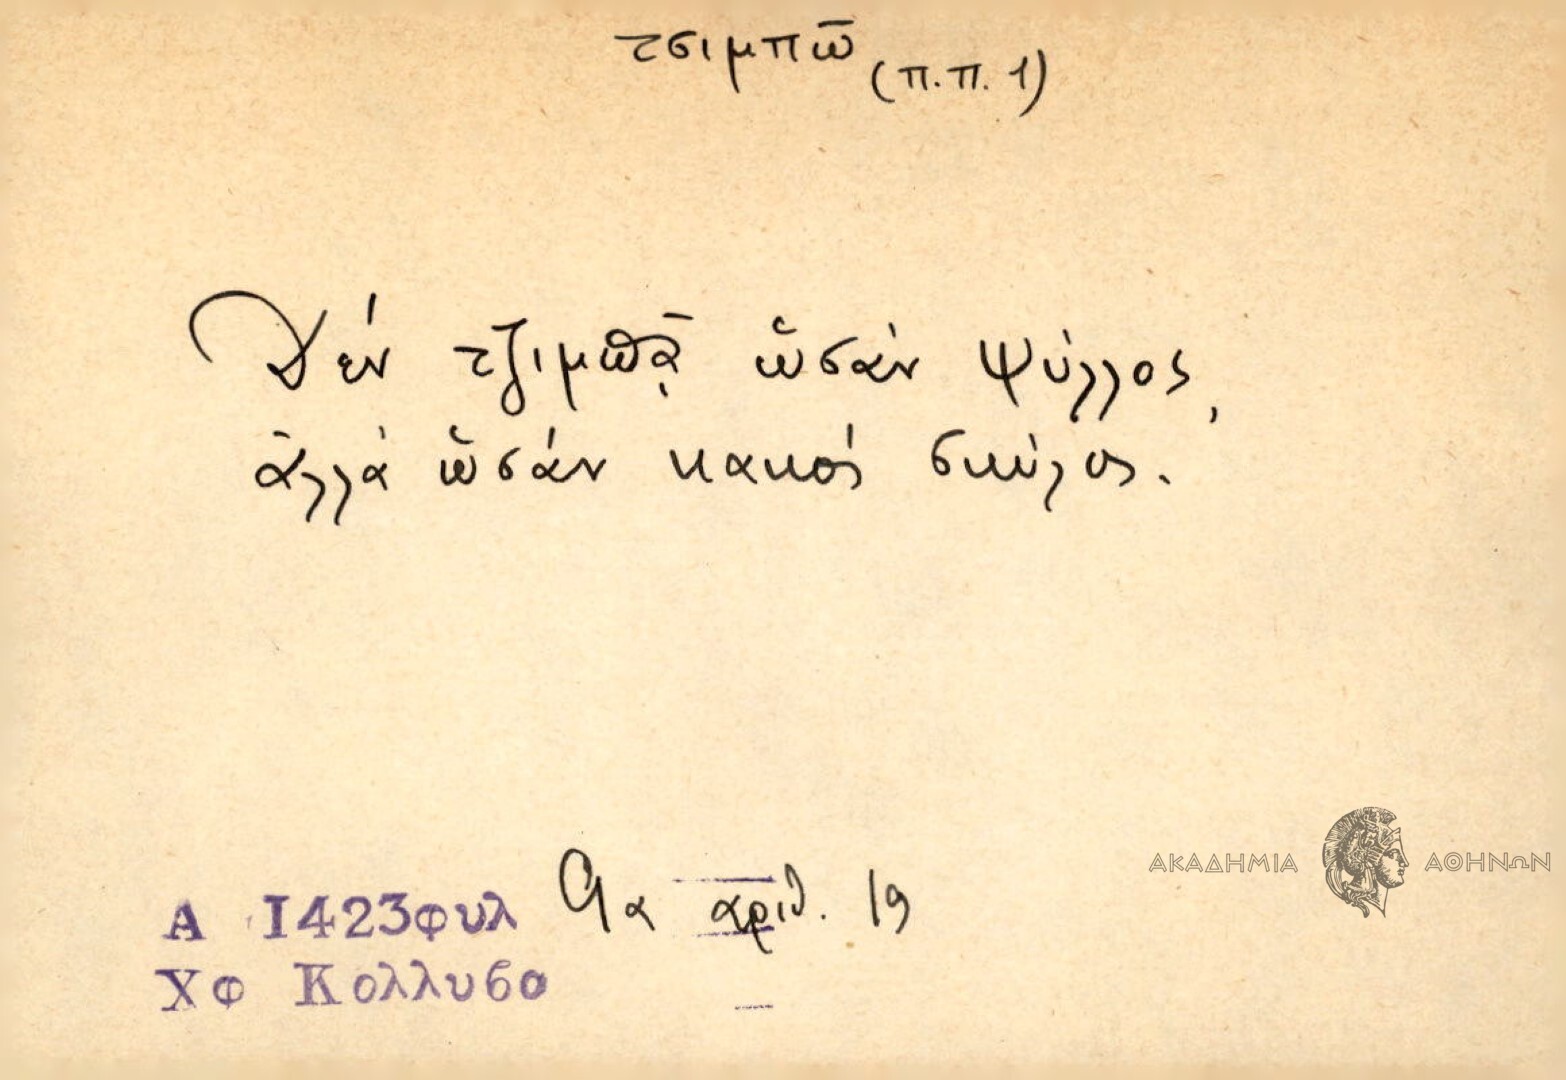 τσιμπῶ (π.π. 1)
Δέν τζιμπᾷ ὥσάν ψύλλος,
ἀλλά ὥσάν κακός σκύλος.
Α 1423φυλ 9α ἀριθ. 19
Χφ Κολλυβα
ΑΚΑΔΗΜΙΑ ΑΘΗΝΩΝ